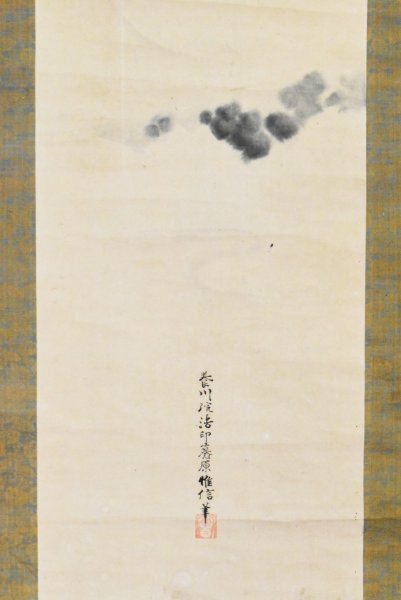 養川院法印藤原惟信筆